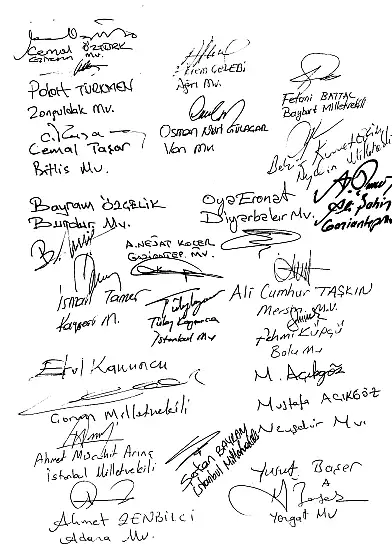 Cemal ÖZTÜRK
Giresun Mv.
Ekrem ÇELEBİ
Ağrı Mv.
Fetani BATTAL
Bayburt Milletvekili
Polat TÜRKMEN
Zonguldak Mv.
Osman Nuri GÜLAÇAR
Van Mv.
Cemal Taşar
Bitlis Mv.
Bayram ÖZÇELİK
Burdur Mv.
Oya Eronat
Diyarbakır Mv.
Gaziantep Mv.
A. NEJAT KOÇER
GAZİANTEP. MV.
İsmail Tamer
Kayseri M.
Tülay Kaynarca
İstanbul Mv
Ali Cumhur TAŞKIN
Mersin M.V.
Fehmi KÜPÇÜ
Bolu Mv
Milletvekili
M. Açıkgöz
Mustafa AÇIKGÖZ
Nevşehir Mv.
Ahmet Mücahit Arınç
İstanbul Milletvekili
Serkan BAYRAM
İstanbul Milletvekili
Yusuf Başer
Yozgat MV
Ahmet ZENBİLCİ
Adana Mv.